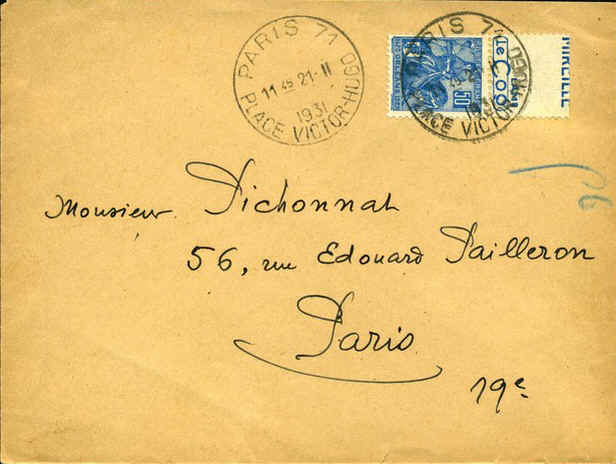 PARIS 71
11 45 21-II
1931
PLACE VICTOR-HUGO
PARIS 71
1931
PLACE VICTOR-HUGO
50c
MIREILLE
Monsieur Pichonnat
56, rue Edouard Pailleron
Paris
19e